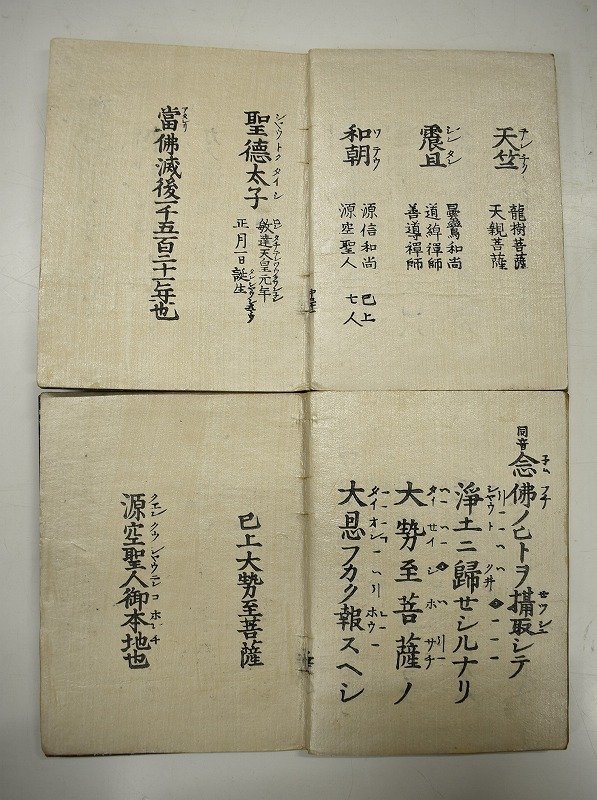 天竺
龍樹菩薩
天親菩薩
震旦
曇鸞和尚
道綽禪師
善導禪師
和朝
源信和尚 已上
源空聖人 七人
聖德太子
敏達天皇元年
正月一日誕生
當佛滅後一千五百二十一年也
同音
念佛ノヒトヲ攝取シテ
淨土ニ歸せシムルナリ
大勢至菩薩ノ
大恩フカク報スヘシ
已上大勢至菩薩
源空聖人御本地也